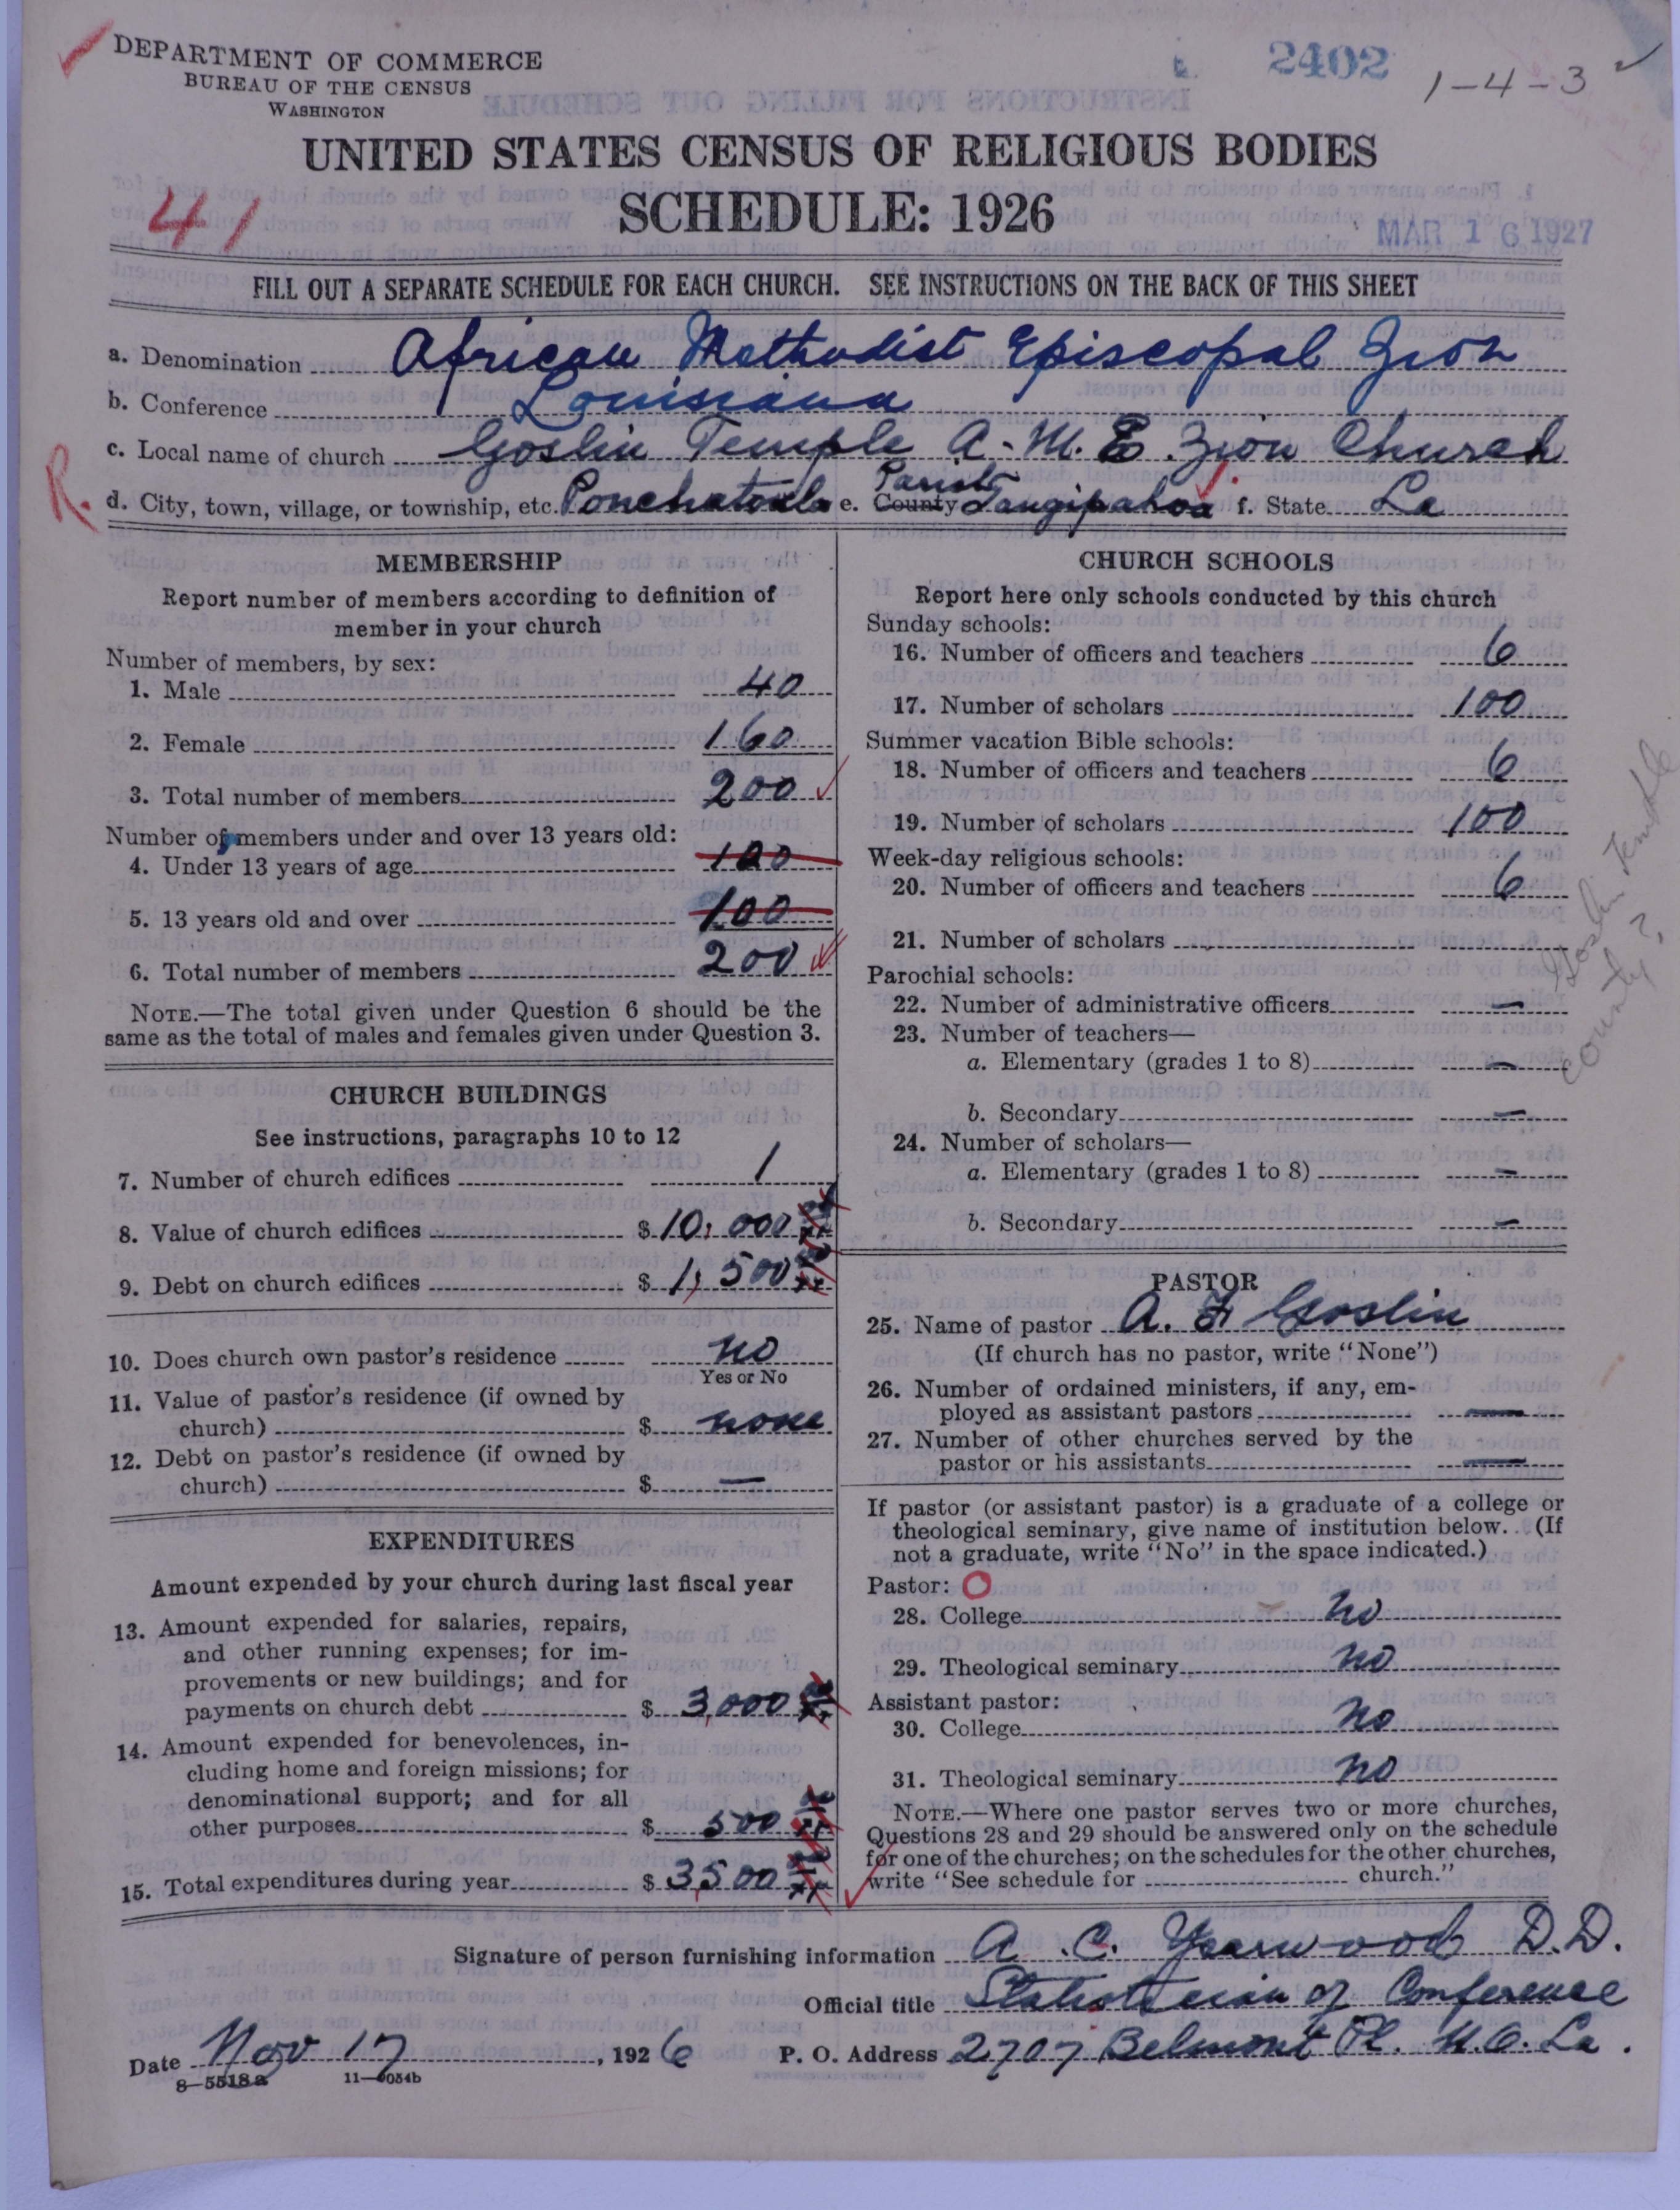 DEPARTMENT OF COMMERCE
BUREAU OF THE CENSUS
WASHINGTON
2402
1-4-3
UNITED STATES CENSUS OF RELIGIOUS BODIES
SCHEDULE: 1926
41
MAR 16 1927
FILL OUT A SEPARATE SCHEDULE FOR EACH CHURCH. SEE INSTRUCTIONS ON THE BACK OF THIS SHEET
a. Denomination African Methodist Episcopal Zion
b. Conference Louisiana
c. Local name of church Goslin Temple A. M. E. Zion Church
R. d. City, town, village, or township, etc. Ponchatoula e. County Parish Tangipahoa f. State La
MEMBERSHIP
Report number of members according to definition of
member in your church
Number of members, by sex:
1. Male 40
2. Female 160
3. Total number of members 200
Number of members under and over 13 years old:
4. Under 13 years of age 100
5. 13 years old and over 100
6. Total number of members 200
NOTE.—The total given under Question 6 should be the
same as the total of males and females given under Question 3.
CHURCH BUILDINGS
See instructions, paragraphs 10 to 12
7. Number of church edifices 1
8. Value of church edifices $ 10,000
9. Debt on church edifices $ 1,500
10. Does church own pastor's residence no
Yes or No
11. Value of pastor's residence (if owned by
church) $ none
12. Debt on pastor's residence (if owned by
church) $ —
EXPENDITURES
Amount expended by your church during last fiscal year
13. Amount expended for salaries, repairs,
and other running expenses; for im-
provements or new buildings; and for
payments on church debt $ 3,000
14. Amount expended for benevolences, in-
cluding home and foreign missions; for
denominational support; and for all
other purposes $ 500
15. Total expenditures during year $ 3,500
CHURCH SCHOOLS
Report here only schools conducted by this church
Sunday schools:
16. Number of officers and teachers 6
17. Number of scholars 100
Summer vacation Bible schools:
18. Number of officers and teachers 6
19. Number of scholars 100
Week-day religious schools:
20. Number of officers and teachers 6
21. Number of scholars
Parochial schools:
22. Number of administrative officers —
23. Number of teachers—
a. Elementary (grades 1 to 8) —
b. Secondary —
24. Number of scholars—
a. Elementary (grades 1 to 8) —
b. Secondary —
Goslin Temple
County?
PASTOR
25. Name of pastor A. F Goslin
(If church has no pastor, write "None")
26. Number of ordained ministers, if any, em-
ployed as assistant pastors —
27. Number of other churches served by the
pastor or his assistants —
If pastor (or assistant pastor) is a graduate of a college or
theological seminary, give name of institution below. (If
not a graduate, write "No" in the space indicated.)
Pastor: O
28. College no
29. Theological seminary no
Assistant pastor:
30. College no
31. Theological seminary no
NOTE.—Where one pastor serves two or more churches,
Questions 28 and 29 should be answered only on the schedule
for one of the churches; on the schedules for the other churches,
write "See schedule for church."
Signature of person furnishing information A. C. Yearwood D.D.
Official title Statistician of Conference
Date Nov 17, 1926 P. O. Address 2707 Belmont Pl. N.O. La.
8-5518a 11-9054b